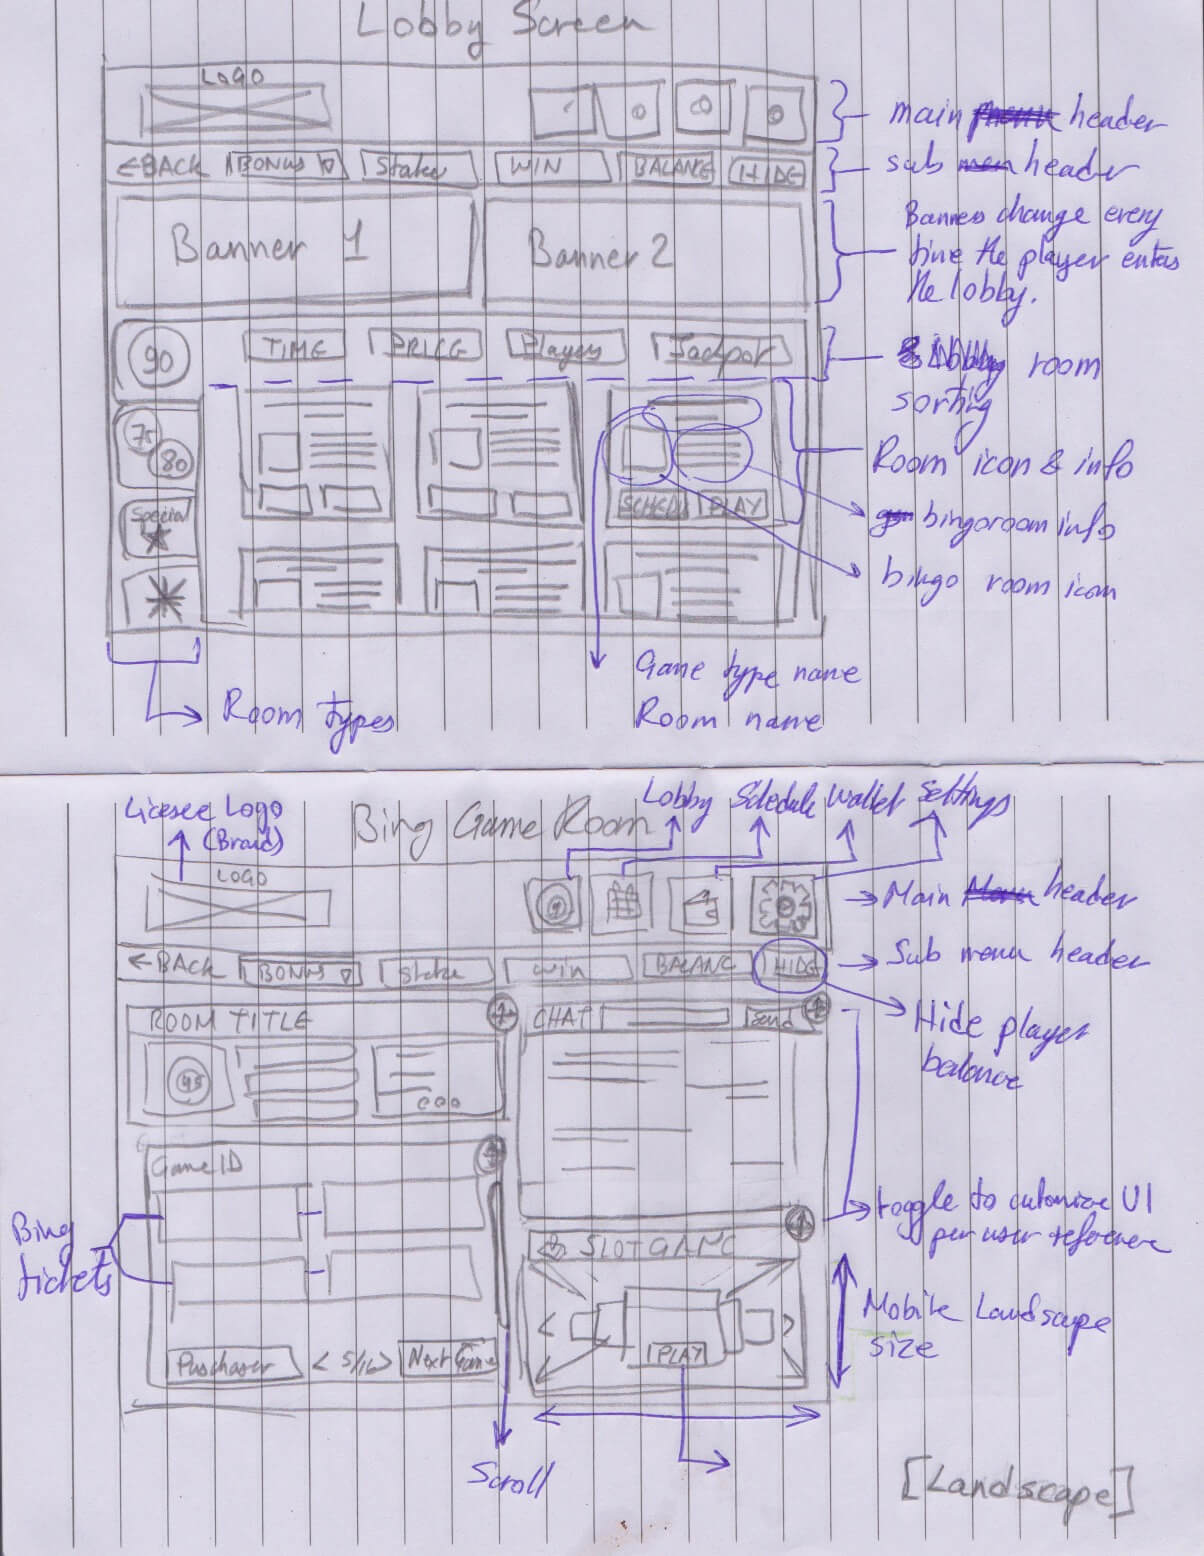 Lobby Screen
LOGO
main header
←BACK BONUS Stake WIN BALANCE HIDE
sub header
Banner 1
Banner 2
Banners change every
time the player enters
the lobby.
90
TIME PRICE Players Jackpot
room
sorting
75
80
Room icon & info
Special
SCHED PLAY
bingoroom info
bingo room icon
Game type name
Room name
Room types
Lobby Schedule Wallet Settings
Licesee Logo
(Brand)
Bing Game Room
LOGO
Main header
←BACK BONUS Stake Win BALANC HIDE
Sub menu header
ROOM TITLE
CHAT Send
Hide player
balance
Game ID
Bing
tickets
toggle to cutomize UI
per user reference
SLOT GAME
Mobile Landscape
size
PLAY
Purchase < 5/16 > Next Game
Scroll
[Landscape]